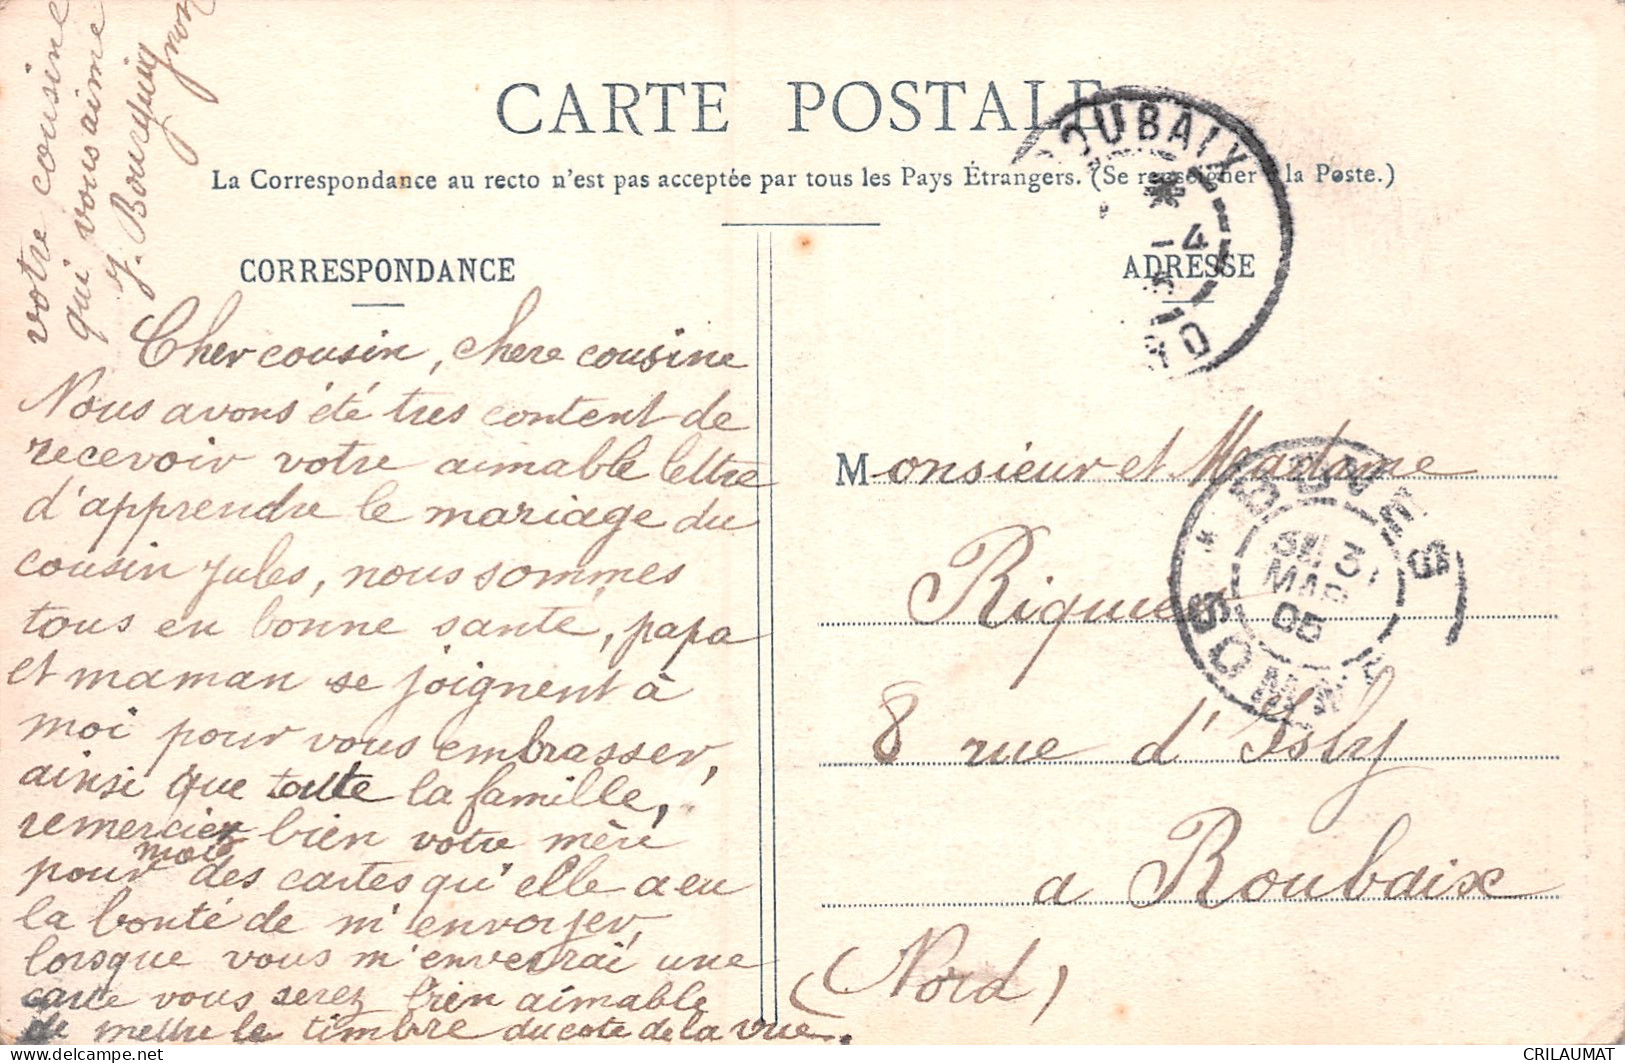 CARTE POSTALE
La Correspondance au recto n'est pas acceptée par tous les Pays Étrangers. (Se renseigner à la Poste.)
CORRESPONDANCE
Cher cousin, chere cousine
Nous avons été tres content de
recevoir votre aimable lettre
d'apprendre le mariage du
cousin jules, nous sommes
tous en bonne sante, papa
et maman se joignent à
moi pour vous embrasser,
ainsi que toute la famille,
remercier bien votre mère
pour moi des cartes qu'elle a eu
la bonté de m'envoyer,
lorsque vous m'enverrai une
carte vous serez bien aimable
de mettre le timbre du coté de la vue.
votre cousine
qui vous aime
J. Bourguignon
ADRESSE
Monsieur et Madame
Riquier
8 rue d'Isly
a Roubaix
(Nord)
ROUBAIX
-4
BOVES
SOMME
3
MAR
05
CRILAUMAT